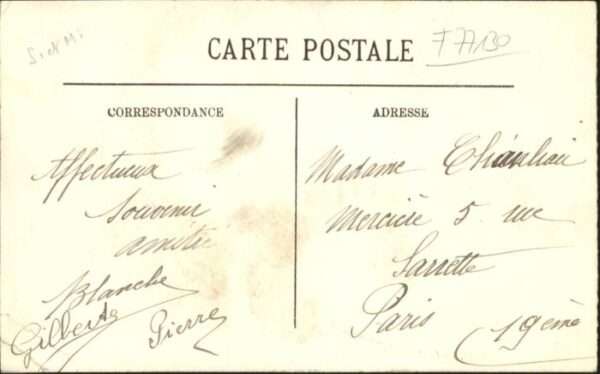 S et M
F 77130
CARTE POSTALE
CORRESPONDANCE
Affectueux
Souvenir
amitié
Blanche
Gilberte Pierre
ADRESSE
Madame
Mercière 5 rue
Sarrette
Paris 19ème